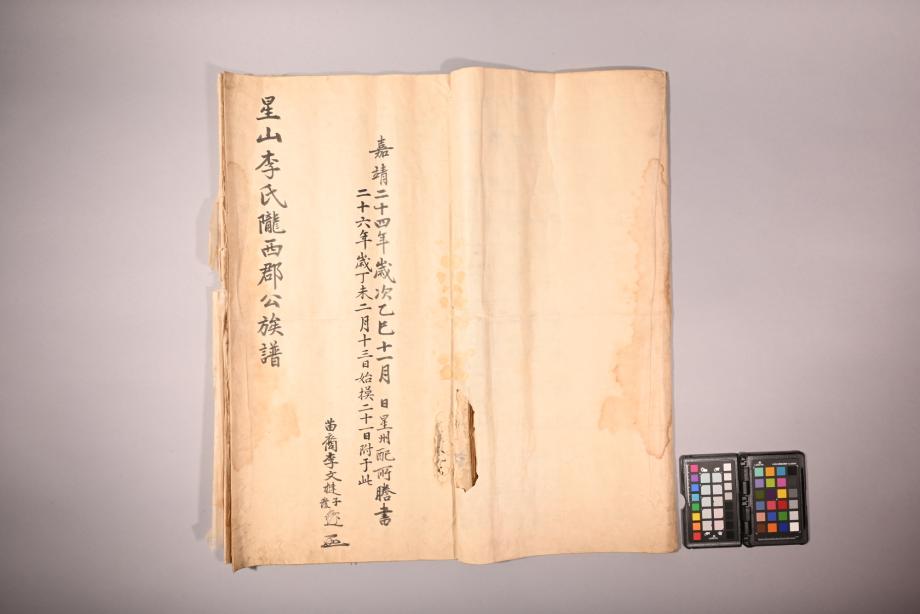 嘉靖二十四年歲次乙巳十一月 日星州配所謄書
二十六年歲丁未二月十三日始摸二十一日附于此
苗裔李文楗子發
星山李氏隴西郡公族譜